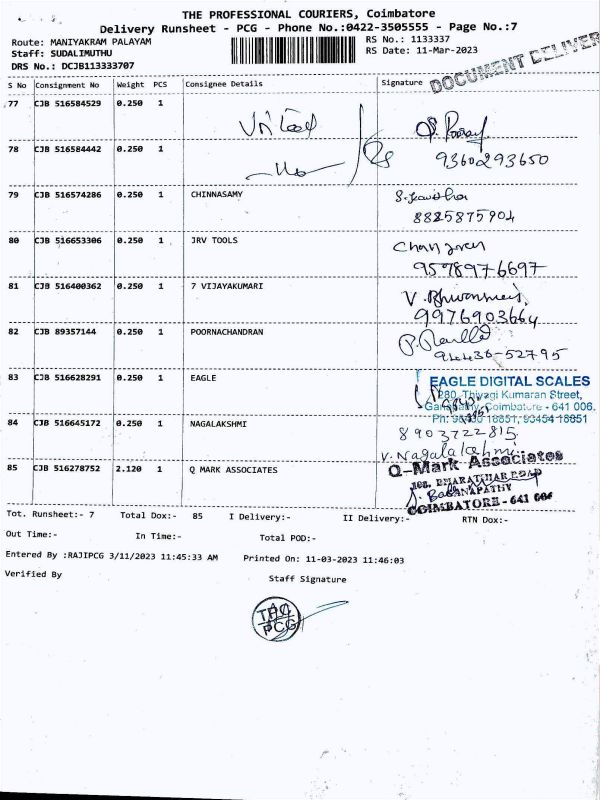 THE PROFESSIONAL COURIERS, Coimbatore
Delivery Runsheet - PCG - Phone No.:0422-3505555 - Page No.:7
Route: MANIYAKRAM PALAYAM
RS No.: 1133337
Staff: SUDALIMUTHU
RS Date: 11-Mar-2023
DRS No.: DCJB113333707
DOCUMENT DELIVER
S No Consignment No Weight PCS Consignee Details Signature
77 CJB 516584529 0.250 1
78 CJB 516584442 0.250 1
9360293650
79 CJB 516574286 0.250 1 CHINNASAMY
8825875904
80 CJB 516653306 0.250 1 JRV TOOLS
9578976697
81 CJB 516400362 0.250 1 7 VIJAYAKUMARI
9976903664
82 CJB 89357144 0.250 1 POORNACHANDRAN
94436-52795
83 CJB 516628291 0.250 1 EAGLE
EAGLE DIGITAL SCALES
Thiyagi Kumaran Street,
Coimbatore - 641 006.
84 CJB 516645172 0.250 1 NAGALAKSHMI
8903722815
V. Nagalakshmi
85 CJB 516278752 2.120 1 Q MARK ASSOCIATES
Q-Mark Associates
BHARATHIAR ROAD
GANAPATHY
COIMBATORE - 641 006
Tot. Runsheet:- 7 Total Dox:- 85 I Delivery:- II Delivery:- RTN Dox:-
Out Time:- In Time:- Total POD:-
Entered By :RAJIPCG 3/11/2023 11:45:33 AM Printed On: 11-03-2023 11:46:03
Verified By Staff Signature
PCG